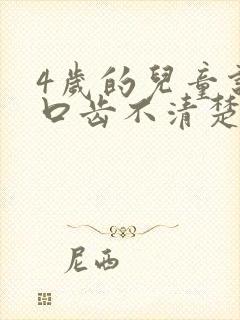 4歲的兒童
口齿不清楚
尼西